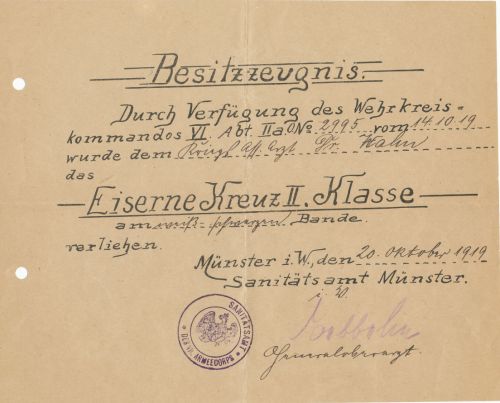 Besitzzeugnis.
Durch Verfügung des Wehrkreis=
kommandos VI Abt. IIa No 2995 vom 14.10.19
wurde dem Kriegs Ass. Arzt Dr. Kahn
das
Eiserne Kreuz II. Klasse
am weiß-schwarzen Bande.
verliehen.
Münster i.W., den 20. Oktober 1919
Sanitätsamt Münster.
SANITÄTSAMT
DES VII. ARMEECORPS
Generaloberarzt.